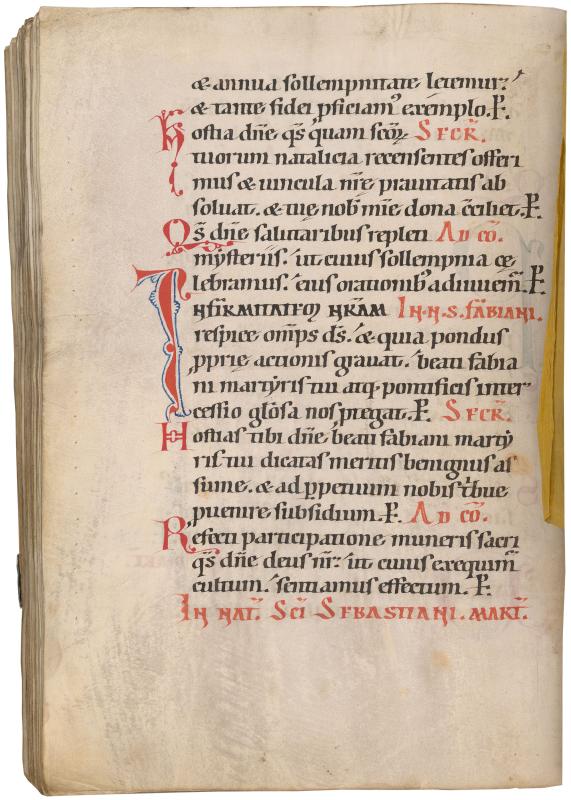 & annua sollempnitate letemur:
& tante fidei ꝓficiam᷒ exemplo. P̷.
Hostia dn̄e q̄s quam scōꝝ SECR̄.
tuorum natalicia recensentes offeri
mus & uincula nr̄e prauitatis ab
soluat. & tue nob̄ mīe dona c̄ciliet. P̷.
Qs̄ dn̄e salutaribus repleti AD CŌ.
mysteriis. ut cuius sollempnia ce
lebramus. eius orationib᷒ adiuuem̄. P̷.
INFIRMITATEM NR̄AM IN N. S. FABIANI.
respice om̄ps ds̄. & quia pondus
ꝓprie actionis grauat. beati fabia
ni martyris tui atq; pontificis inter
cessio glō̄sa nos ꝓtegat. P̷. SECR̄.
Hostias tibi dn̄e beati fabiani marty
ris tui dicatas meritis benignus as
sume. & ad ꝑpetuum nobis t̄bue
ꝓuenire subsidium. P̷. AD CŌ.
Refecti participatione muneris sacri
q̄s dn̄e deus nr̄. ut cuius exequim᷒
cultum. sentiamus effectum. P̷.
IN NAT̄. SCI SEBASTIANI. MART̄.